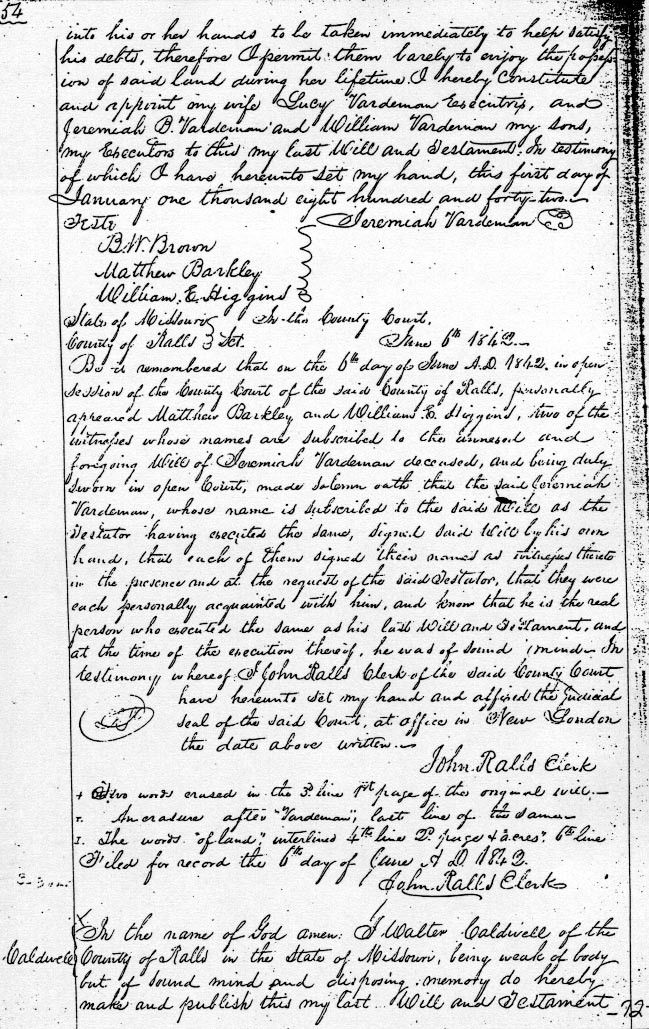 54
into his or her hands to be taken immediately to help satisfy
his debts, therefore I permit them barely to enjoy the possess
ion of said land during her lifetime. I hereby Constitute
and appoint my wife Lucy Vardeman Executrix, and
Jeremiah B. Vardeman and William Vardeman my sons,
my Executors to this my last Will and Testament. In testimony
of which I have hereunto set my hand, this first day of
January one thousand eight hundred and forty-two.
Teste Jeremiah Vardeman
B. W. Brown
Matthew Barkley
William E. Higgins
State of Missouri In the County Court.
County of Ralls Sct. June 6th 1842.
Be it remembered that on the 6th day of June A.D. 1842, in open
session of the County Court of the said County of Ralls, personally
appeared Matthew Barkley and William E. Higgins, two of the
witnesses whose names are subscribed to the annexed and
foregoing Will of Jeremiah Vardeman deceased, and being duly
sworn in open Court, made solemn oath that the said Jeremiah
Vardeman, whose name is subscribed to the said Will as the
Testator having executed the same, signed said Will by his own
hand, that each of them signed their names as witnesses thereto
in the presence and at the request of the said Testator, that they were
each personally acquainted with him, and know that he is the real
person who executed the same as his last Will and Testament, and
at the time of the execution thereof, he was of sound mind. In
testimony whereof I John Ralls Clerk of the said County Court
have hereunto set my hand and affixed the Judicial
seal of the said Court, at office in New London
the date above written.
John Ralls Clerk
+ Two words erased in the 3d line 1st page of the original will.
An erasure after "Vardeman", last line of the same
The words "of land", interlined 4th line 2d page & acres" 6th line
Filed for record the 6th day of June A D 1842.
John Ralls Clerk
In the name of God amen: I Walter Caldwell of the
Caldwell County of Ralls in the State of Missouri, being weak of body
but of sound mind and disposing memory do hereby
make and publish this my last Will and Testament